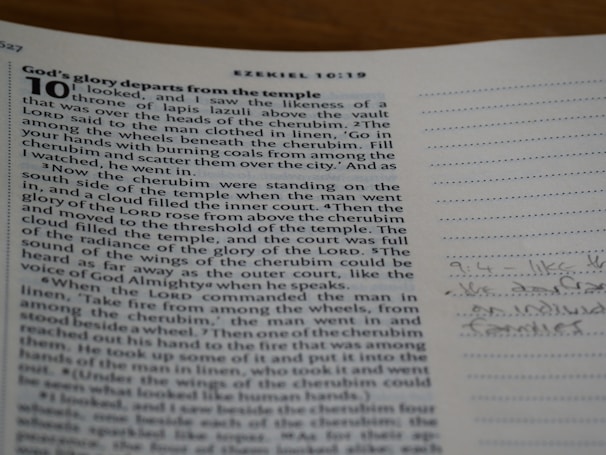 527
EZEKIEL 10:19
God's glory departs from the temple
10 I looked, and I saw the likeness of a
throne of lapis lazuli above the vault
that was over the heads of the cherubim. 2The
LORD said to the man clothed in linen, 'Go in
among the wheels beneath the cherubim. Fill
your hands with burning coals from among the
cherubim and scatter them over the city.' And as
I watched, he went in.
3Now the cherubim were standing on the
south side of the temple when the man went
in, and a cloud filled the inner court. 4Then the
glory of the LORD rose from above the cherubim
and moved to the threshold of the temple. The
cloud filled the temple, and the court was full
of the radiance of the glory of the LORD. 5The
sound of the wings of the cherubim could be
heard as far away as the outer court, like the
voice of God Almighty a when he speaks.
6When the LORD commanded the man in
linen, 'Take fire from among the wheels, from
among the cherubim,' the man went in and
stood beside a wheel. 7Then one of the cherubim
reached out his hand to the fire that was among
them. He took up some of it and put it into the
hands of the man in linen, who took it and went
out. 8(Under the wings of the cherubim could
be seen what looked like human hands.)
9I looked, and I saw beside the cherubim four
wheels, one beside each of the cherubim; the
wheels sparkled like topaz. 10As for their ap-
pearance, the four of them looked alike; each
9:4 - like th
on individ
families